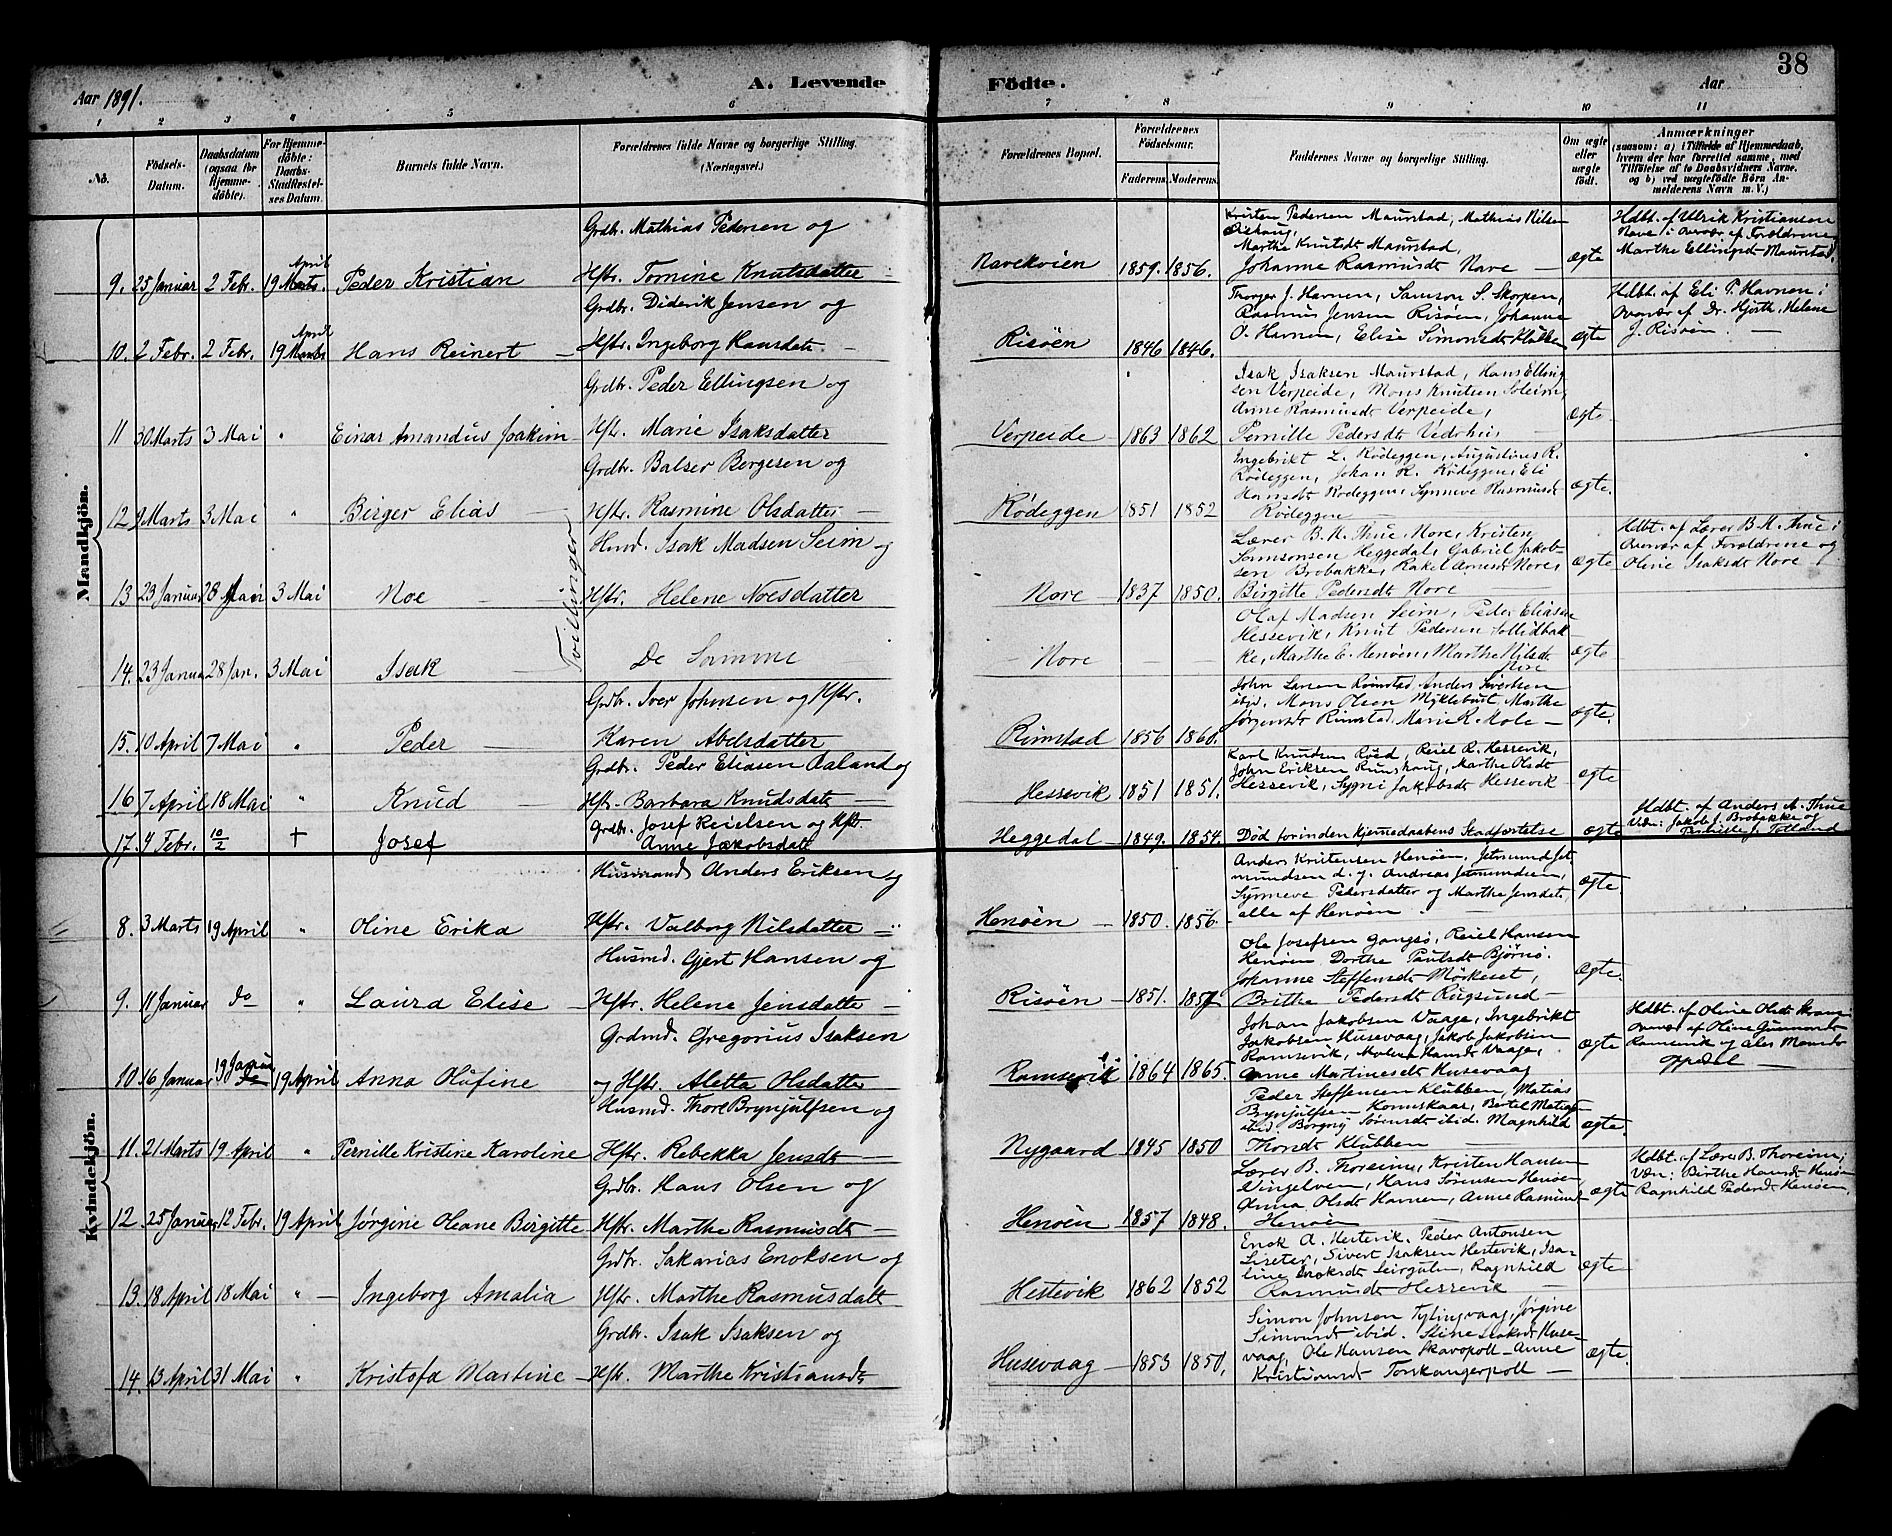 38
Aar 1891.
A. Levende
Födte.
Aar
1 2 3 4 5 6 7 8 9 10 11
No.
Födsels-Datum.
Daabsdatum (ogsaa for Hjemme-döbte).
For Hjemme-döbte: Daabs-Stadfæstel-ses Datum.
Barnets fulde Navn.
Forældrenes fulde Navne og borgerlige Stilling. (Næringsvei.)
Forældrenes Bopæl.
Forældrenes Födselsaar.
Faderens. Moderens.
Faddernes Navne og borgerlige Stilling.
Om ægte eller uægte födt.
Anmærkninger
(saasom: a) i Tilfælde af Hjemmedaab, hvem der har forrettet samme, med Tilföielse af to Daabsvidners Navne, og b) ved uægtefödte Börn Anmelderens Navn m. V.)
Mandkjön.
9. 25 Januar 2 Febr. 19 April Marts. Peder Kristian
Grdbr. Mathias Pedersen og
Hstr. Tomine Knutsdatter
Navekvien 1859. 1856.
Kristen Pedersen Maurstad, Mathias Nilsen
Marthe Knutsdt Maurstad,
Johanne Rasmusdt Nave
ægte
Hdbt. af Ulrik Kristiansen
Nave i Overvær af Forældrene
Marthe Ellingsdt Maurstad
10. 2 Febr. 2 Febr. 19 April Marts Hans Reinert
Grdbr. Diderik Jensen og
Hstr. Ingeborg Hansdatt.
Risöen 1846 1846.
Thorger J. Havnen, Samson S. Skorpen,
Rasmus Jensen Risöen, Johanne
O. Havnen, Elise Simonsdt Klubben
ægte
Hdbt. af Eli P. Havnen i
Overvær af Dr. Hjorth, Helene
J. Risöen
11 30 Marts 3 Mai " Einar Amandus Joakim
Grdbr. Peder Ellingsen og
Hstr. Marie Isaksdatter
Verpeide 1863 1862
Isak Isaksen Maurstad, Hans Elling
sen Verpeide, Mons Knutsen Soleim,
Anne Rasmusdt Verpeide,
Pernille Pedersdt
ægte
12 9 Marts 3 Mai " Birger Elias
Grdbr. Balser Bergesen og
Hstr. Rasmine Olsdatter
Rödeggen 1851 1852
Ingebrikt L. Rödeggen, Augustinus R.
Rödeggen, Johan R. Rödeggen, Eli
Hansdt Rödeggen, Synneve Rasmusdt
Rödeggen
ægte.
Tvillinger
13 23 Januar 28 Jan 3 Mai Noe
Husmd. Isak Madsen Seim og
Hstr. Helene Noesdatter
Nore 1837 1850.
Lærer B. M. Thue, Nore, Kristen
Samsonsen Heggedal, Gabriel Jakob-
sen Brobakke, Rakel Arnesdt Nore,
Birgitte Pedersdt Nore
ægte
Hdbt. af Lærer B. M. Thue i
Overvær af Forældrene og
Oline Isaksdt Nore
14. 23 Januar 28 Jan. 3 Mai Isak
De Samme
Nore
Olaf Madsen Seim, Peder Eliassen
Hessevik, Knut Pedersen
ke, Marthe E. Henöen, Marthe Nilsdt
Nore
ægte
15. 10 April 7 Mai " Peder
Grdbr. Iver Johnsen og Hstr.
Karen Abelsdatter
Rimstad 1856 1860.
John Larsen Rimstad, Anders Sivertsen
ibid. Mons Olsen Myklebust, Marthe
Jörgensdt Rimstad, Marie R. Mole
ægte.
16 7 April 18 Mai " Knud
Grdbr. Peder Eliasen Aaland og
Hstr. Barbara Knudsdatt
Hessevik 1851 1851.
Karl Knudsen Röed, Reiel R. Hessevik,
John Eriksen Runshaug, Marthe Olsdt
Hessevik, Sygni Jakobsdt Hessevik
ægte
17. 9 Febr. 10/2 + Josef
Grdbr. Josef Reielsen og Hstr.
Anne Jakobsdatt
Heggedal 1849. 1854.
Död forinden Hjemmedaabens Stadfæstelse
ægte
Hdbt. af Anders A. Thue
Vidn: Jakob J. Brobakke og
Totland
Kvindekjön.
8. 3 Marts 19 April " Oline Erika
Husmand Anders Eriksen og
Hstr. Valborg Nilsdatter
Henöen 1850. 1856
Anders Kristensen Henöen, Jetmund Jet-
mundsen d. y. Andreas Jetmundsen,
Synneve Pedersdatter og Marthe Jensdat.
alle af Henöen
ægte
9. 11 Januar do " Laura Elise
Husmd. Gjert Hansen og
Hstr. Helene Jensdatter
Risöen 1851. 1857
Ole Josefsen Gangsö, Reiel Hansen
Henöen Dorthe Paulsdt Björnö.
Johanne Steffensdt Mörkeset,
Brithe Pedersdt Rugsund
ægte.
10. 16 Januar 19 Januar 19 April Anna Olufine
Grdmd. Gregorius Isaksen
og Hstr. Aletta Olsdatter
Ramsevik 1864 1865.
Johan Jakobsen Vaage, Ingebrikt
Jakobsen Husevaag, Jakob Jakobsen
Ramsevik, Malene Hansdt Vaage,
Anne Martinesdt Husevaag
ægte
Hdbt. af Oline Olsdt
Overvær af Oline Gunnarsdt
Ramsevik og Ales Monsdt
Oppedal
11. 21 Marts 19 April " Pernille Kristine Karoline
Husmd. Thore Brynjulfsen og
Hstr. Rebekka Jensdt
Nygaard 1845 1850
Peder Steffensen Klubben, Matias
Brynjulfsen Konnskaar, Bertel Matias
ibid. Borgny Sörensdt ibid. Magnhild
Thorsdt Klubben
ægte.
12. 25 Januar 12 Febr. 19 April Jörgine Oleane Birgitte
Grdbr. Hans Olsen og
Hstr. Marthe Rasmusdt
Henöen 1857 1848.
Lærer B. Thoreim, Kristen Hansen
Vingelven, Hans Sörensen Henöen,
Anna Olsdt Havnen, Anne Rasmusd
Henöen
ægte
Hdbt. af Lærer B. Thoreim;
Vidn: Birthe Hansdt Henöen
Ragnhild Pedersdt Henöen.
13. 18 April 18 Mai " Ingeborg Amalia
Grdbr. Sakarias Enoksen og
Hstr. Marthe Rasmusdatt
Hestevik 1862 1852
Enok A. Hestevik. Peder Antonsen
Liseter, Sivert Isaksen Hestevik, Isa-
line Enoksdt Leirgulen, Ragnhild
Rasmusdt Hessevik
ægte
14. 13 April 31 Mai " Kristofa Martine
Grdbr. Isak Isaksen og
Hstr. Marthe Kristiansdt
Husevaag 1853 1850.
Simon Johnsen Tytingvaag, Jörgine
Simonsdt ibid. Stine Isaksdt Huse-
vaag, Ole Hansen Skavøpoll Anne
Kristiansdt Torskangerpoll
ægte.